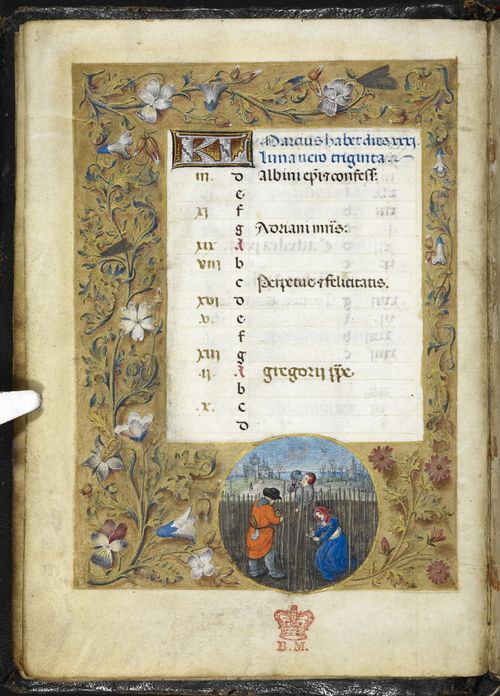 KL Marcius habet dies xxxi.
Luna vero triginta
iii. d Albini epi & confess.
e
xi f
g Adriani mris.
xix A
viii b
c Perpetue & felicitatis.
xvi d
.v. e
f
xiii g
.ii. A gregorii ppe
b
.x. c
d
B.M.